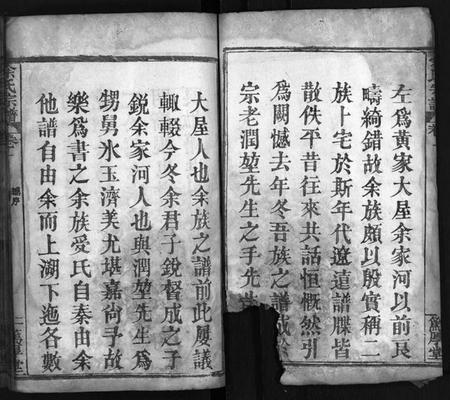 左為黃家大屋余家河以前良
疇綺錯故余族頗以殷實稱二
族卜宅於斯年代遼遠譜牒皆
散佚平昔往來共話恒慨然引
為闕憾去年冬吾族之譜成於
宗老潤堃先生之手先生
大屋人也余族之譜前此屢議
輒輟今冬余君子銳督成之子
銳余家河人也與潤堃先生為
甥舅氷玉濟美尤堪嘉尚予故
樂為書之余族受氏自秦由余
他譜自由余而上溯下迤各數
余氏宗譜
卷
序
二